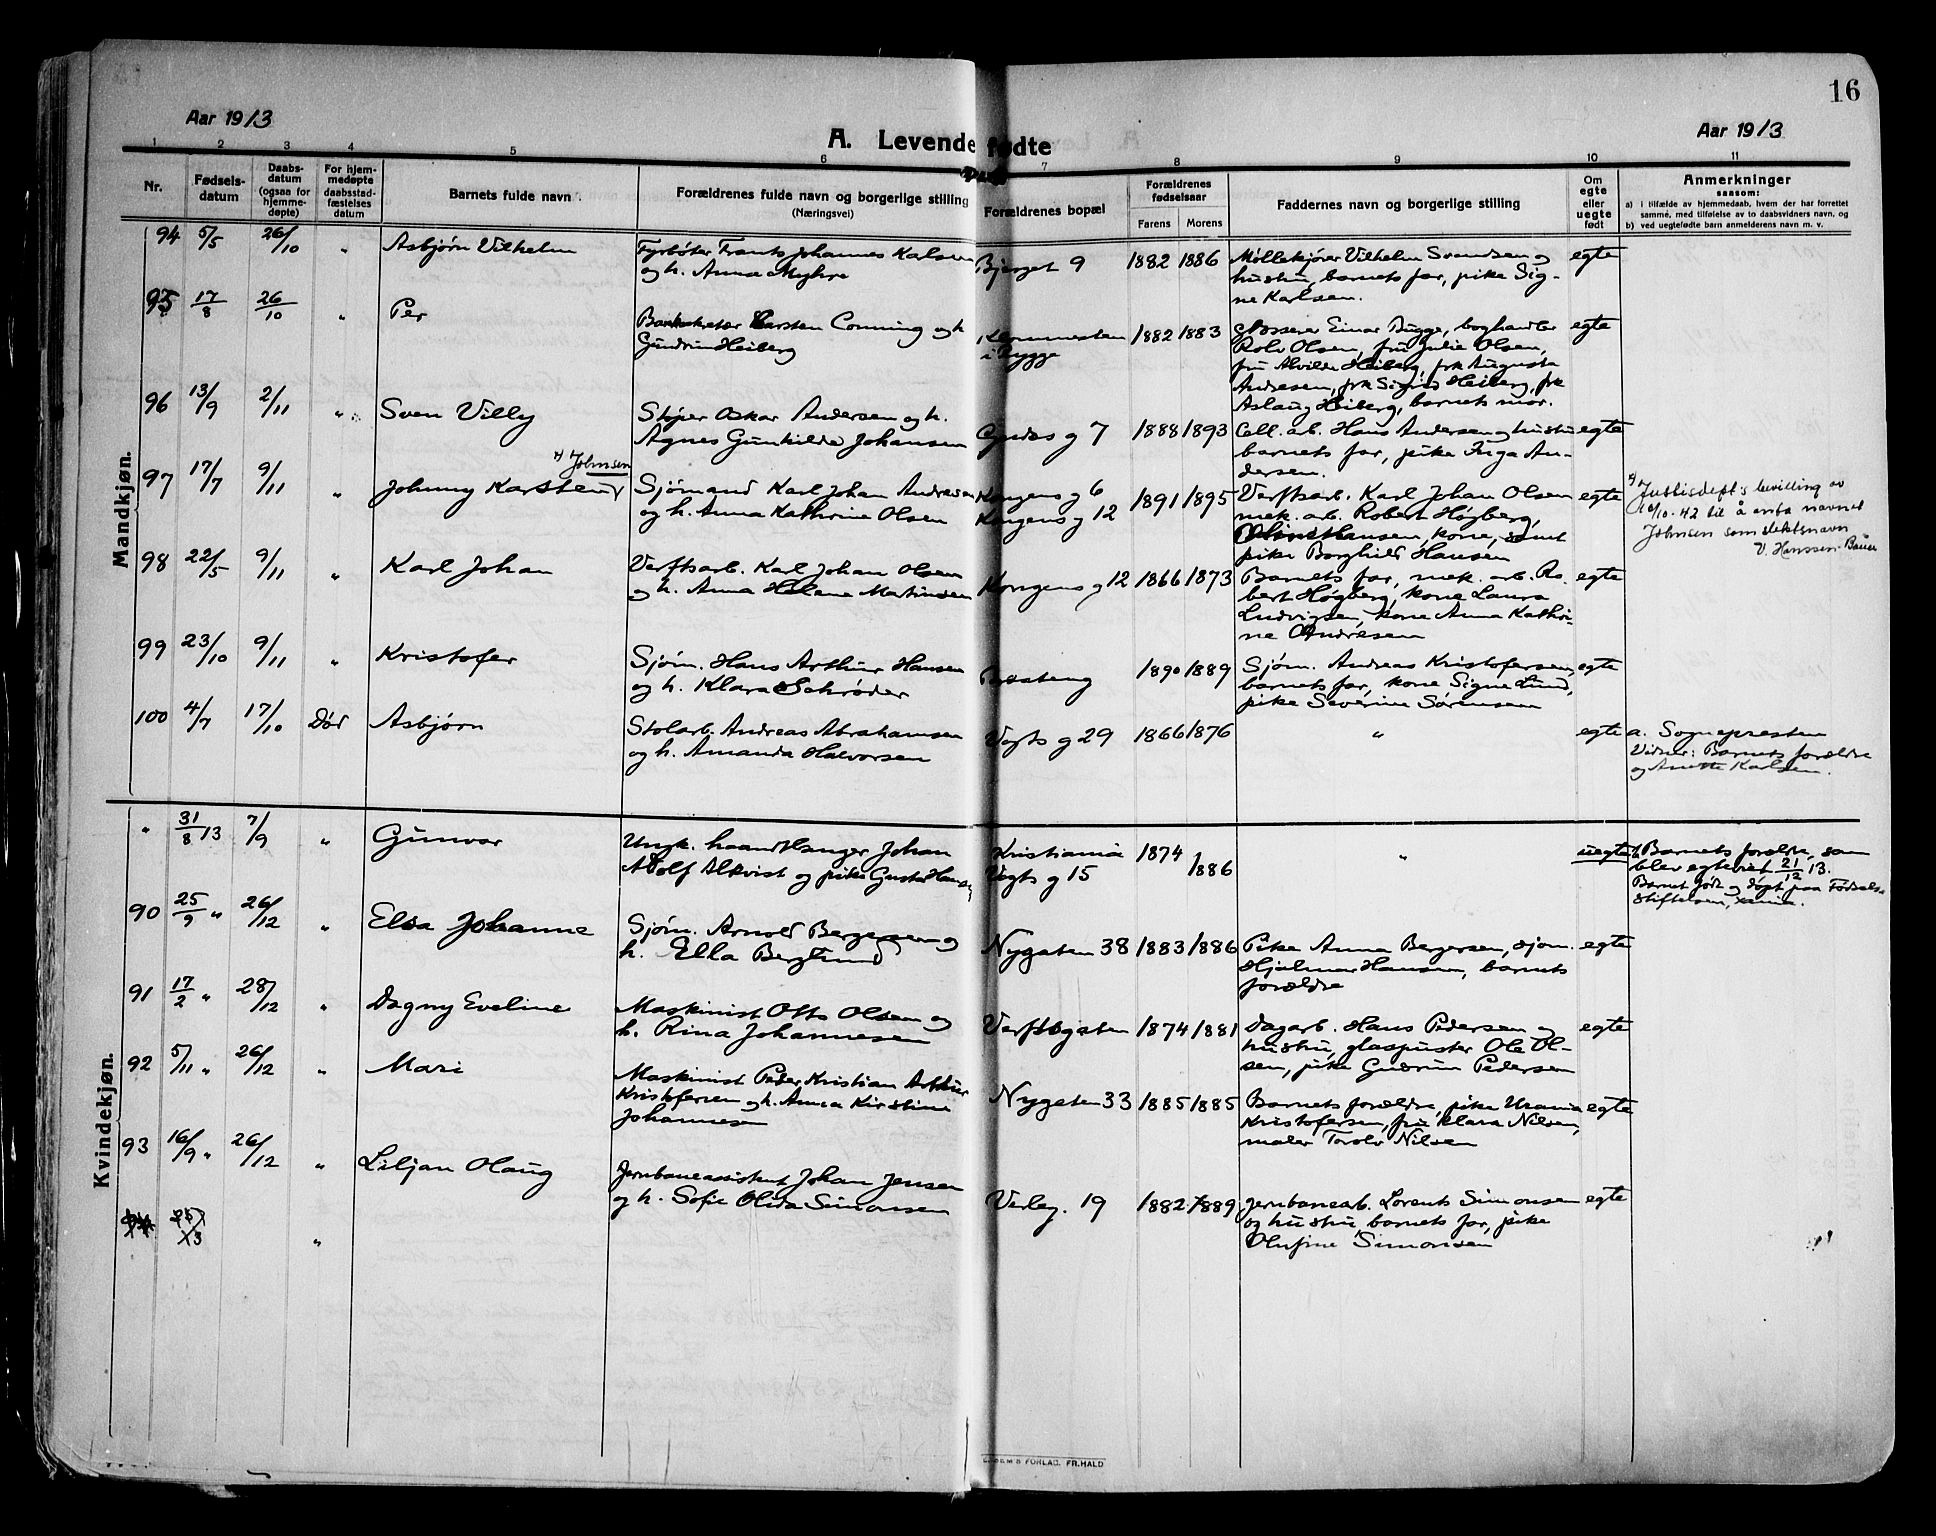 16
Aar 1913
A. Levende fødte
Aar 1913
1 2 3 4 5 6 7 8 9 10 11
Nr.
Fødsels-
datum
Daabs-
datum
(ogsaa for
hjemme-
døpte)
For hjem-
medøpte
daabsstad-
fæstelses
datum
Barnets fulde navn
Forældrenes fulde navn og borgerlige stilling
(Næringsvei)
Forældrenes bopæl
Forældrenes
fødselsaar
Farens Morens
Faddernes navn og borgerlige stilling
Om
egte
eller
uegte
født
Anmerkninger
saasom:
a) i tilfælde av hjemmedaab, hvem der har forrettet
samme, med tilføielse av to daabsvidners navn, og
b) ved uegtefødte barn anmelderens navn m. v.
Mandkjøn.
94 5/5 26/10 " Asbjørn Vilhelm
Fyrbøter Frants Johannes Kalsen
og h. Anna Myhre
Bjerget 9 1882 1886
Møllekjører Vilhelm Svendsen og
hustru, barnets far, pike Sig-
ne Karlsen.
egte
95 17/8 26/10 " Per
Banksekretær Karsten Conning og h
Gudrun Heiberg
i Rygge
1882 1883
Grosserer Einar Bugge, boghandler
Rolv Olsen, fru Julie Olsen,
fru Alvilde Heiberg, frk Augusta
Andresen, frk Sigrid Heiberg, frk
Aslaug Heiberg, barnets mor.
egte
96 13/9 2/11 " Sven Villy
Støper Oskar Andersen og h.
Agnes Gunhilda Johansen
g 7 1888 1893
Cell. arb. Hans Andersen og hustru
barnets far, pike Inga An-
dersen.
egte
97 17/7 9/11 " Johnny Karsten x) Johnsen
Sjømand Karl Johan Andresen
og h. Anna Kathrine Olsen
Kongens g 6
Kongens g 12
1891 1895
Verftsarb. Karl Johan Olsen
mek. arb. Robert Høgberg,
Hansen, kone, samt
pike Borghild Hansen
egte
x) Justisdept's bevilling av
10/10-42 til å anta navnet
Johnsen som slektsnavn
V. Hanssen-Bauer
98 22/5 9/11 " Karl Johan
Verftsarb. Karl Johan Olsen
og h. Anna Helene Martinsen
Kongens g 12 1866 1873
Barnets far, mek. arb. Ro-
bert Høgberg, kone Laura
Ludvigsen, kone Anna Kathri-
ne Andresen
egte
99 23/10 9/11 " Kristofer
Sjøm. Hans Arthur Hansen
og h. Klara Schrøder
1890 1889
Sjøm. Andreas Kristofersen,
barnets far, kone Signe Lund,
pike Severine Sørensen
egte
100 4/7 17/10 Død Asbjørn
Stolarb. Andreas Abrahamsen
og h. Amanda Halvorsen
Vogts g 29 1866 1876 " egte
a. Sognepresten
Vidner: Barnets forældre
og Anette Karlsen.
Kvindekjøn.
" 31/8 13 7/9 " Gunvor
Ungk. haandlanger Johan
Adolf Alkvist og pike Gusta Hansen
Kristiania
Vogts g 15
1874 1886 " uegte
b. Barnets forældre, som
blev egteviet 21/12 13.
Barnet født og døpt paa Fødsels-
stiftelsen, Xania.
90 25/9 " 26/12 " Elsa Johanne
Sjøm. Arnold Bergersen og
h. Ella Berglund
Nygaten 38 1883 1886
Pike Anna Bergersen, sjøm.
Hjalmar Hansen, barnets
forældre
egte
91 17/2 " 28/12 " Dagny Eveline
Maskinist Otto Olsen og
h. Rina Johannesen
Verftsgaten 1874 1881
Dagarb. Hans Pedersen og
hustru, glaspuster Ole Ol-
sen, pike Gudrun Pedersen
egte
92 5/11 " 26/12 " Mari
Maskinist Peder Kristian Arthur
Kristofersen og h. Anna Kirstine
Johannesen
Nygaten 33 1885 1885
Barnets forældre, pike Urania
Kristofersen, fru Klara Nilsen,
maler Torolv Nilsen
egte
93 16/9 " 26/12 " Liljan Olaug
Jernbaneassistent Johan Jensen
og h. Sofie Olida Simonsen
Verleg. 19 1882 1889
Jernbanearb. Lorents Simonsen
og hustru, barnets far, pike
Olufine Simonsen
egte
"
FORLAG. FR. HALD